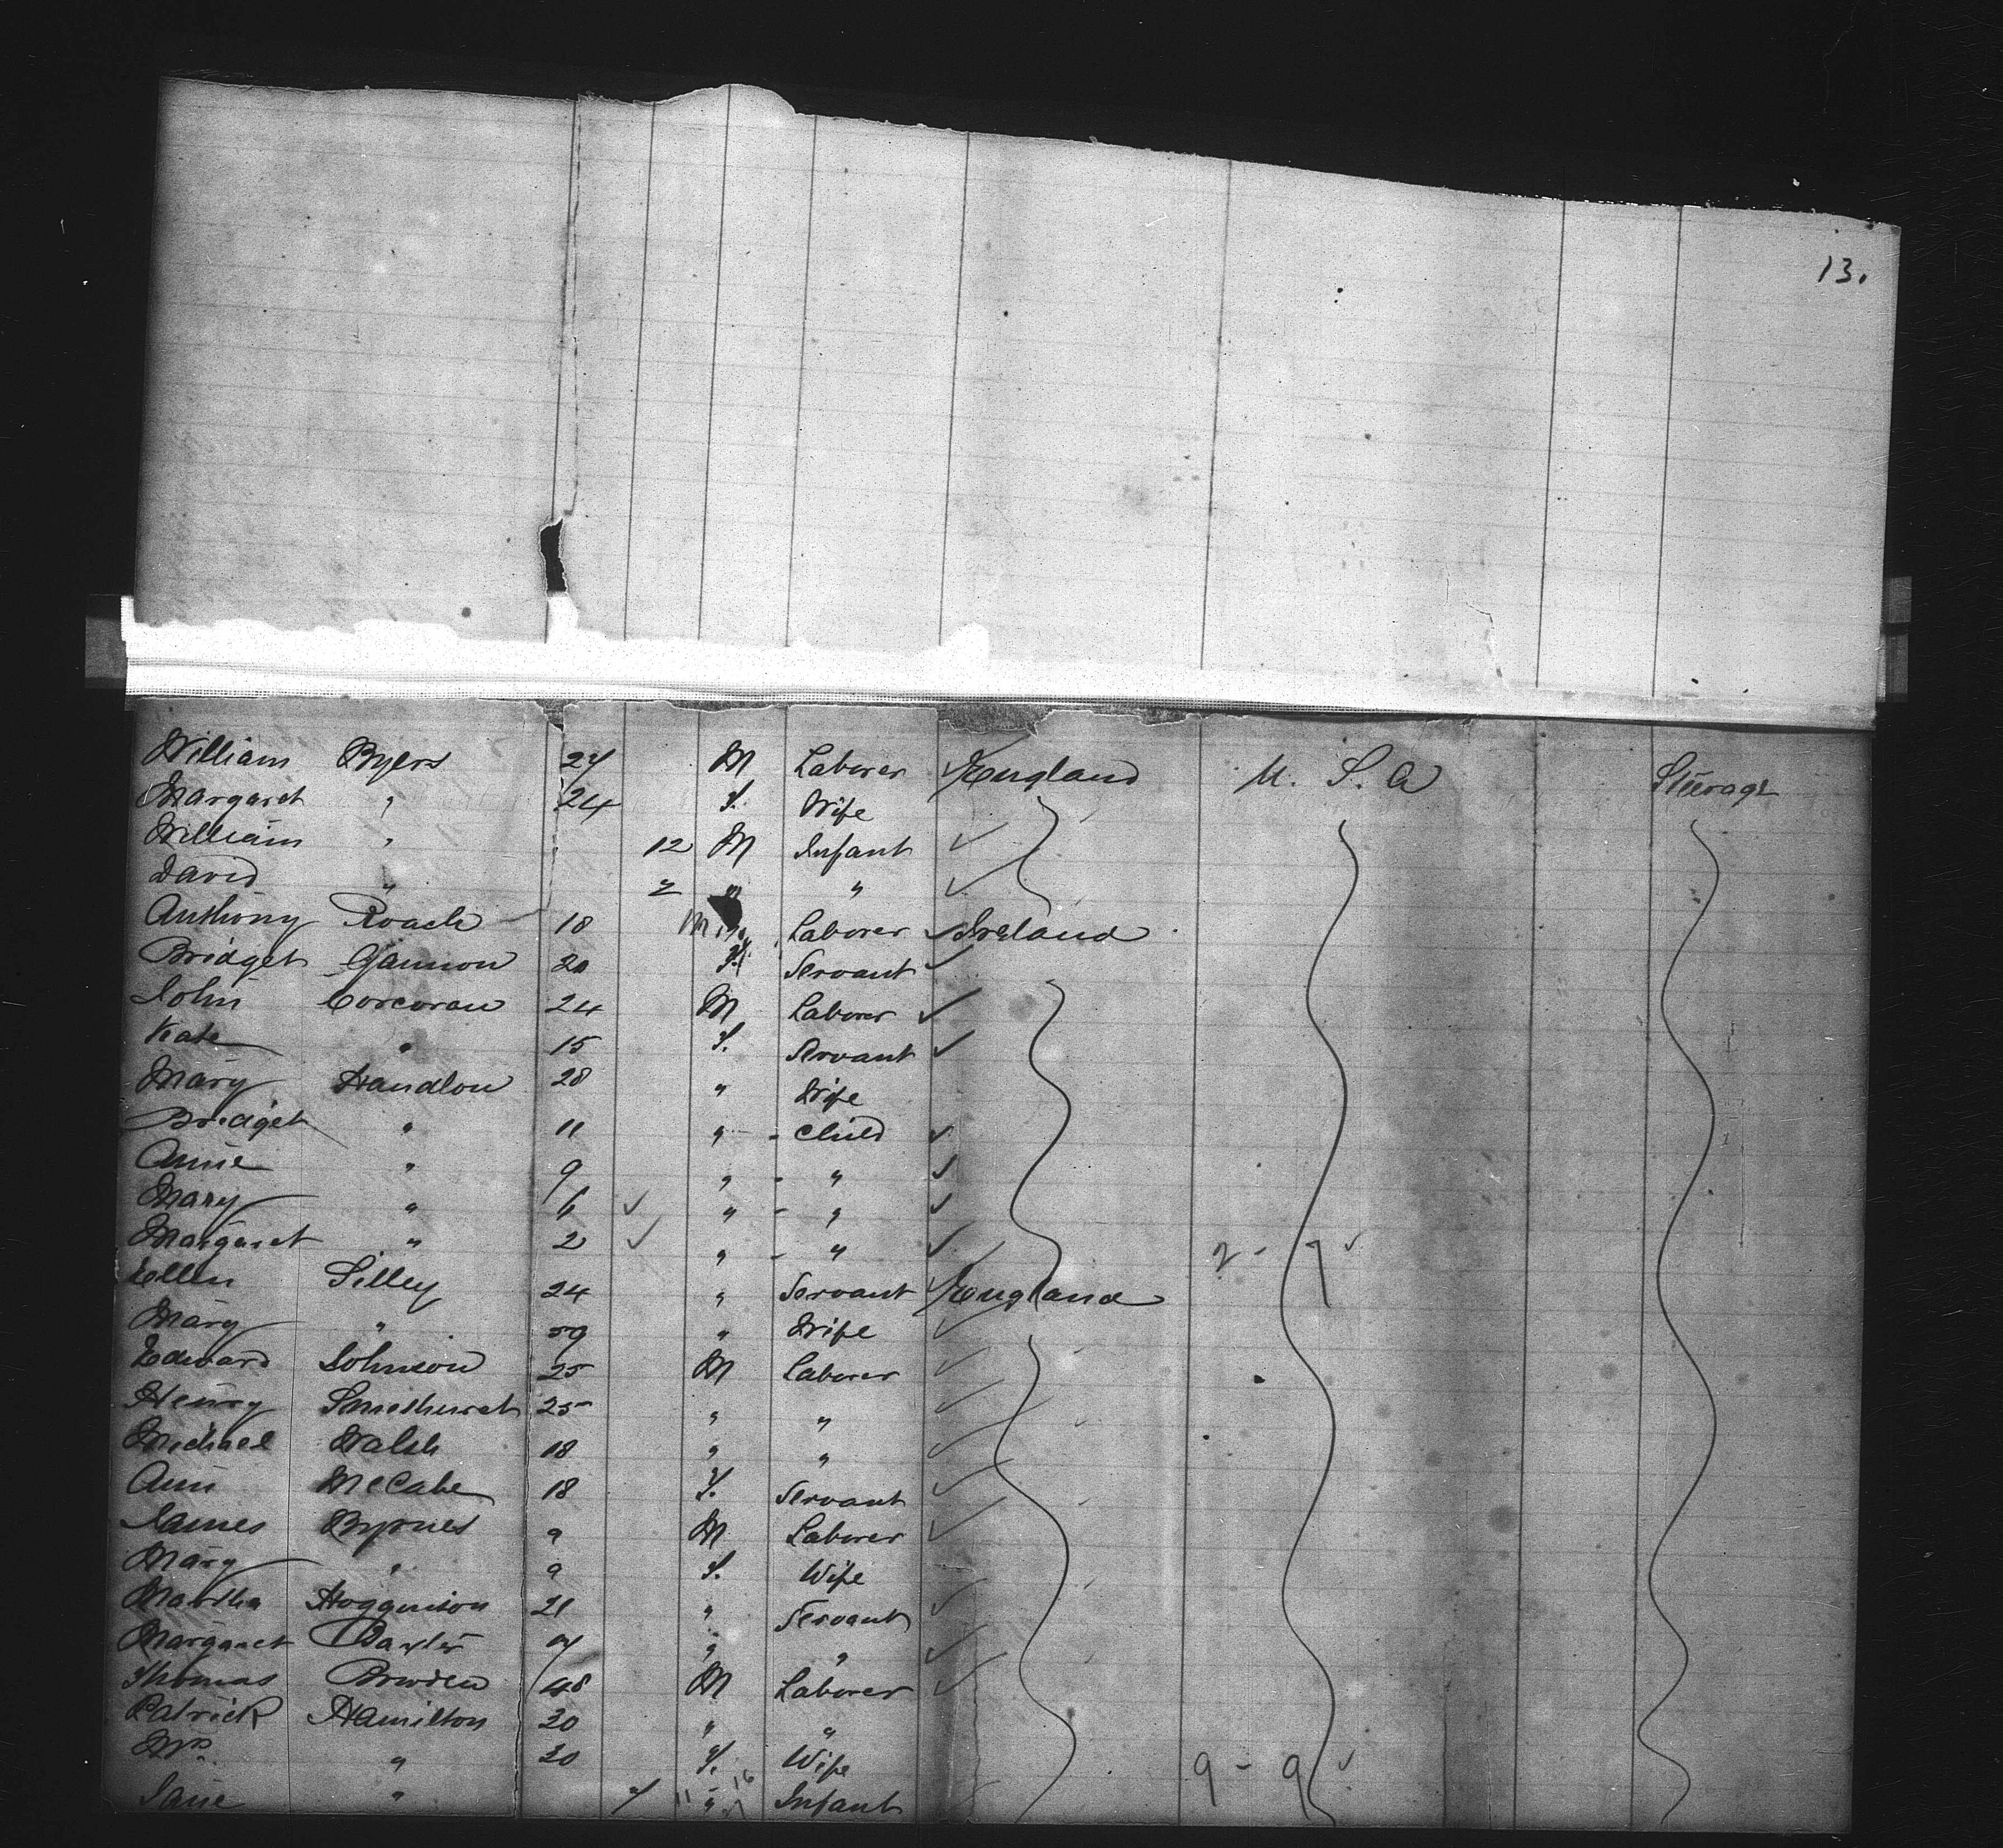 13.
William Byers 27 M Laborer ✓ England U. S. A Steerage
Margaret " 24 F. Wife
William " 12 M Infant ✓
David " 2 " " ✓
Anthony Roach 18 M Laborer ✓ Ireland
Bridget Gannon 20 F. Servant ✓
John Corcoran 24 M Laborer ✓
Kate " 15 F. Servant ✓
Mary Handlon 28 " Wife
Bridget " 11 " - Child ✓
Annie " 9 " - " ✓
Mary " 6 ✓ " - " ✓
Margaret " 2 ✓ " - " ✓ 9 ✓
Ellen Silley 24 " Servant ✓ England
Mary " 59 " Wife ✓
Edward Johnson 25 M Laborer ✓
Henry Smethurst 25 " " ✓
Michael Walsh 18 " " ✓
Ann McCabe 18 F. Servant ✓
James Byrnes 9 M Laborer ✓
Mary " 9 F. Wife
Martha Hogginson 21 " Servant ✓
Margaret " " ✓
Thomas 48 M Laborer ✓
Patrick Hamilton 30 " "
Mrs " 30 F. Wife 9 - 9 ✓
Jane " 7 11 " 16 Infant